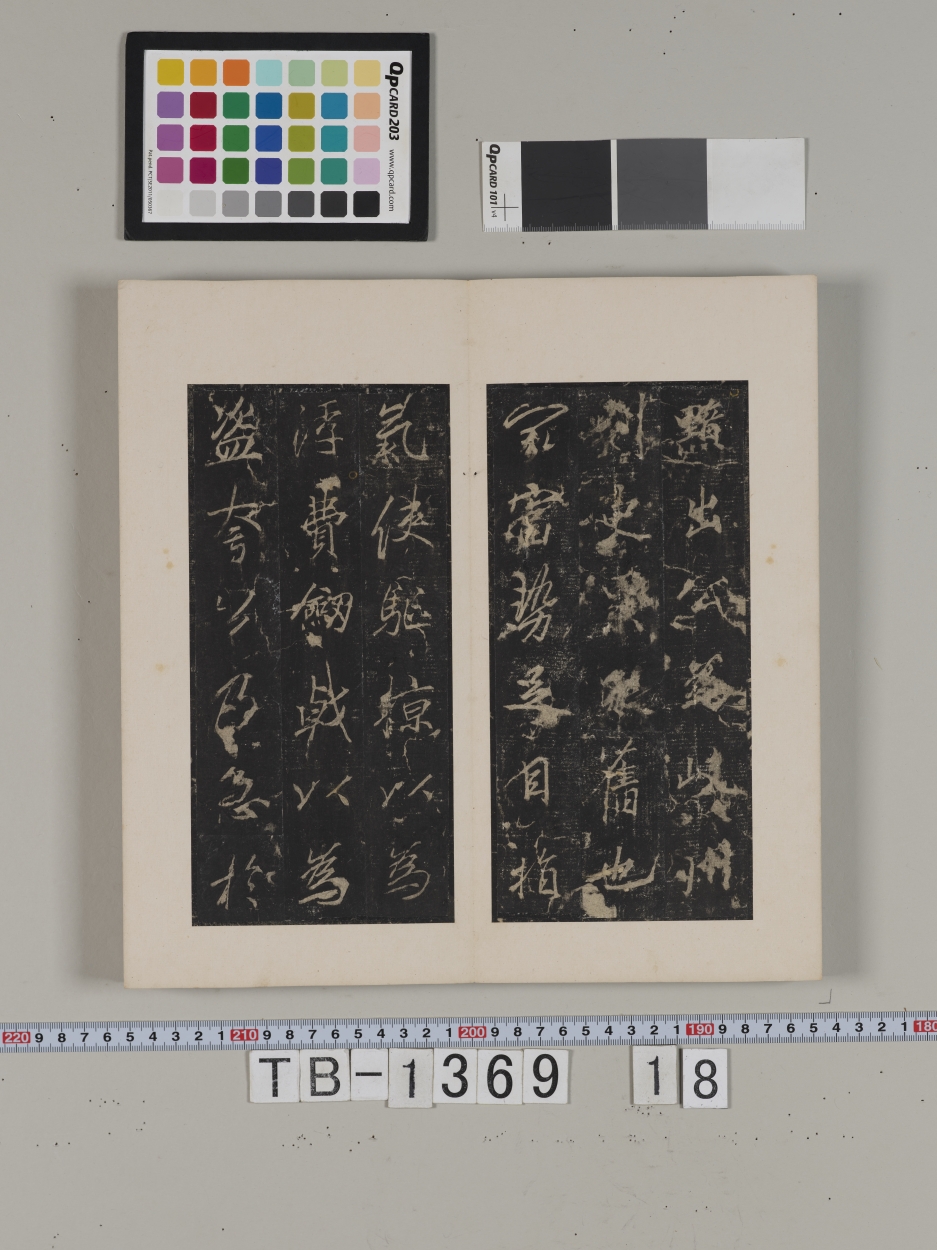 QPCARD 203 www.qpcard.com
QPCARD 101 v4
出為岐州
刺史舊也
家富勢足目指
氣使驅掠以為
浮費劒戟以為
盜夸於
220 9 8 7 6 5 4 3 2 1 210 9 8 7 6 5 4 3 2 1 200 9 8 7 6 5 4 3 2 1 190 9 8 7 6 5 4 3 2 1 180
TB-1369 18